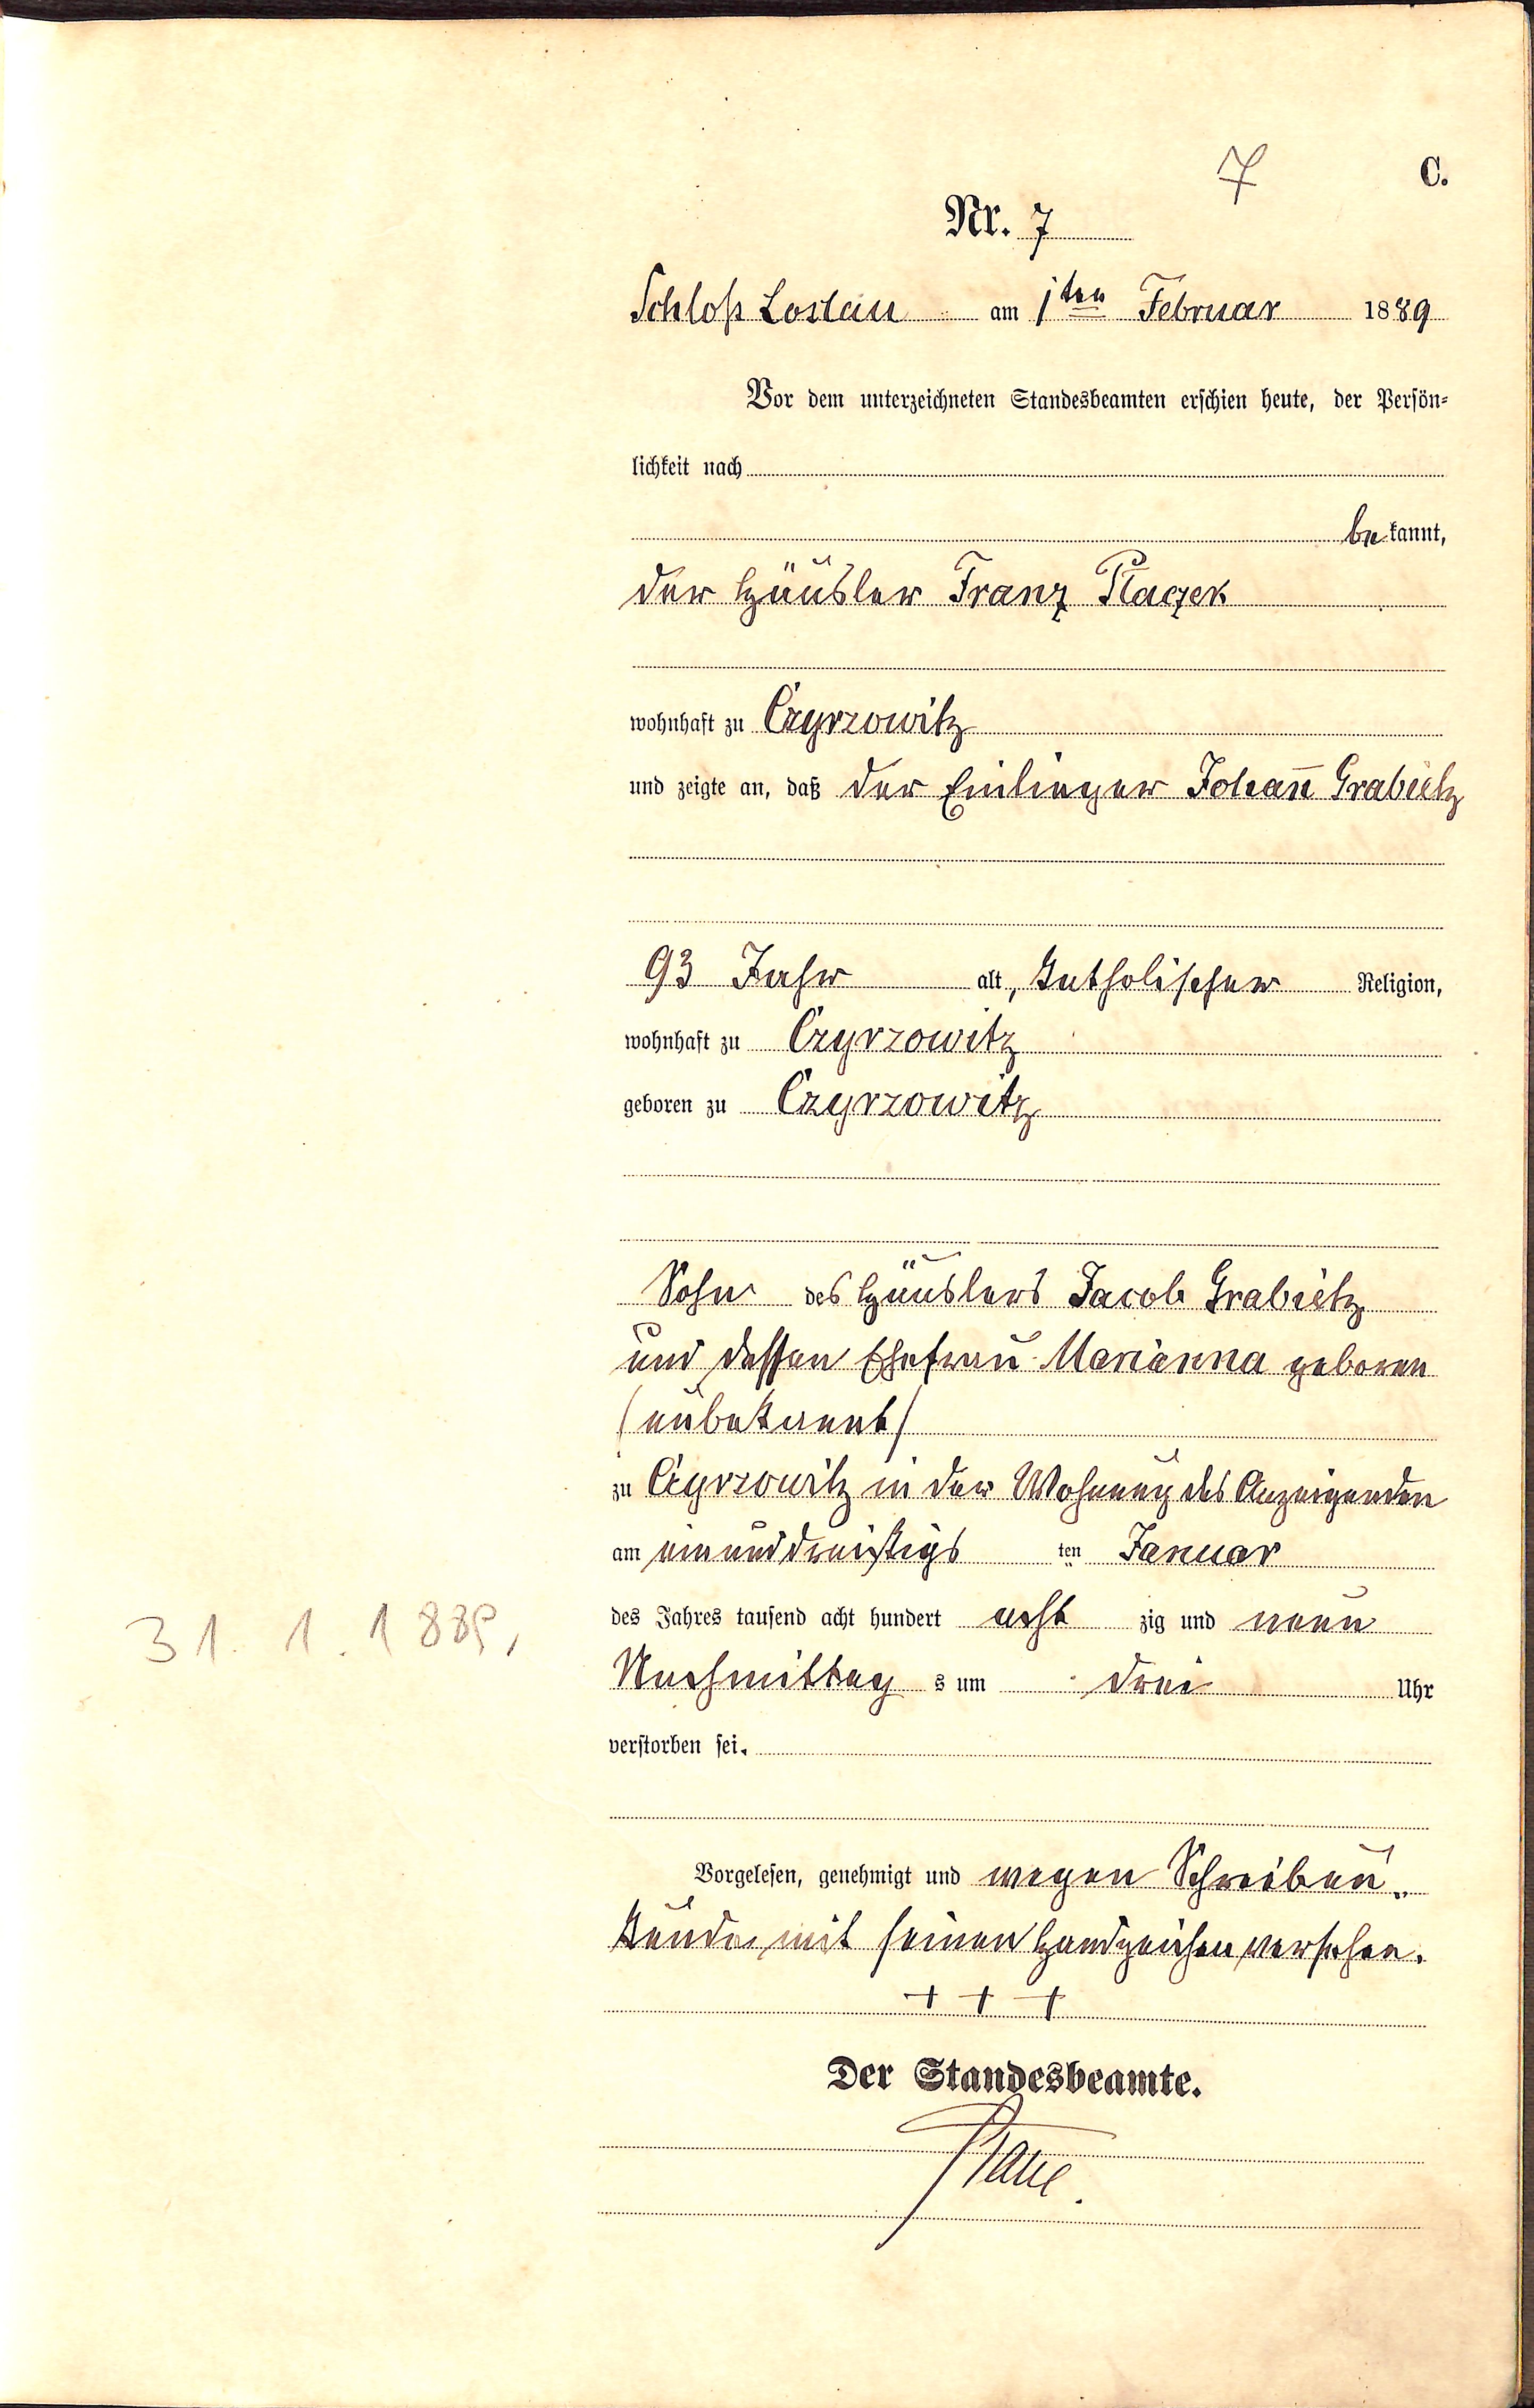 7
C.
Nr. 7
Schloß Loslau am 1ten Februar 1889
Vor dem unterzeichneten Standesbeamten erschien heute, der Persön-
lichkeit nach
bekannt,
der Häusler Franz Placzek
wohnhaft zu Czyrzowitz
und zeigte an, daß der Einlieger Johan̅ Grabietz
93 Jahr alt, katholischer Religion,
wohnhaft zu Czyrzowitz
geboren zu Czyrzowitz
Sohn des Häuslers Jacob Grabietz
und dessen Ehefrau Marianna geboren
(unbekannt)
zu Czyrzowitz in der Wohnung des Anzeigenden
am einunddreißigs ten Januar
des Jahres tausend acht hundert acht zig und neun
31. 1. 1889.
Nachmittag s um drei Uhr
verstorben sei.
Vorgelesen, genehmigt und wegen Schreibun-
kunde mit seinen Handzeichen versehen.
+ + +
Der Standesbeamte.